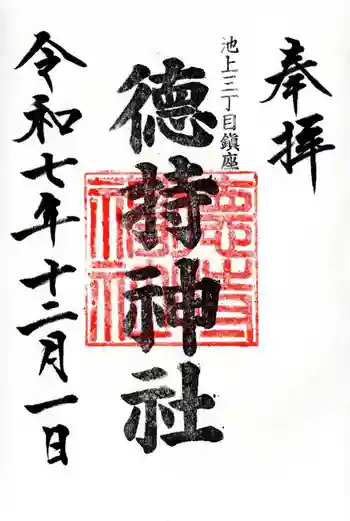 奉拝
池上三丁目鎮座
徳持神社
令和七年十二月一日